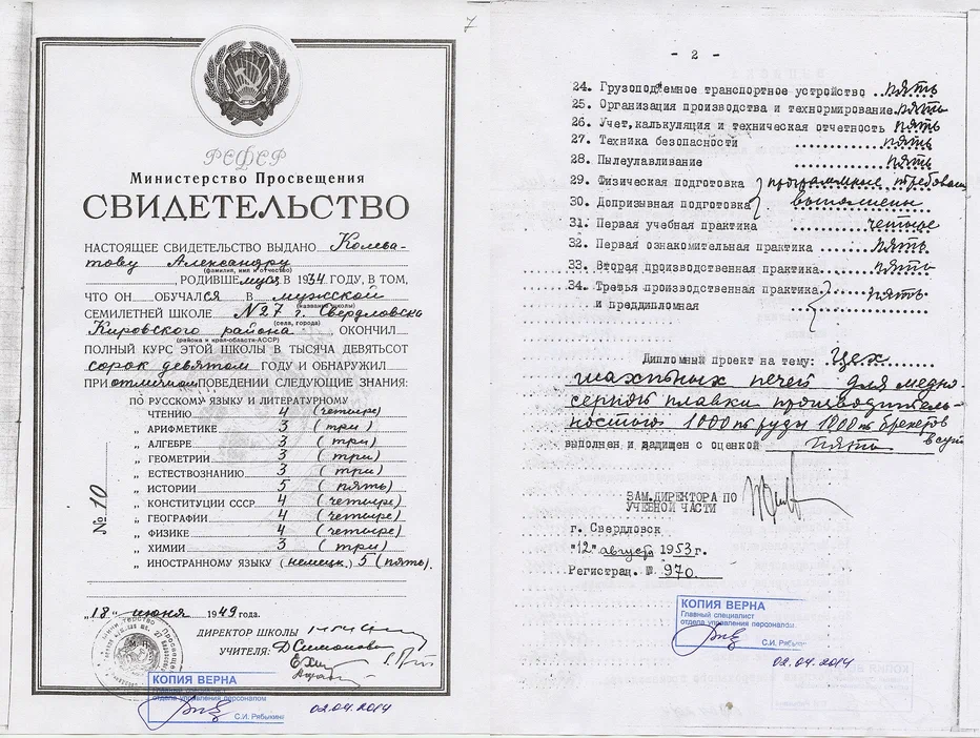 7
РСФСР
Министерство Просвещения
СВИДЕТЕЛЬСТВО
НАСТОЯЩЕЕ СВИДЕТЕЛЬСТВО ВЫДАНО Колева-
тову Александру
(фамилия, имя и отчество)
, РОДИВШЕМУСЯ В 1934 ГОДУ, В ТОМ,
ЧТО ОН ОБУЧАЛСЯ В мужской
(название школы)
СЕМИЛЕТНЕЙ ШКОЛЕ №27 г. Свердловска
(села, города)
Кировского района, ОКОНЧИЛ
(района и края-области-АССР)
ПОЛНЫЙ КУРС ЭТОЙ ШКОЛЫ В ТЫСЯЧА ДЕВЯТЬСОТ
сорок девятом ГОДУ И ОБНАРУЖИЛ
ПРИ отличном ПОВЕДЕНИИ СЛЕДУЮЩИЕ ЗНАНИЯ:
ПО РУССКОМУ ЯЗЫКУ И ЛИТЕРАТУРНОМУ
ЧТЕНИЮ 4 (четыре)
„ АРИФМЕТИКЕ 3 (три)
„ АЛГЕБРЕ 3 (три)
„ ГЕОМЕТРИИ 3 (три)
„ ЕСТЕСТВОЗНАНИЮ 3 (три)
„ ИСТОРИИ 5 (пять)
„ КОНСТИТУЦИИ СССР 4 (четыре)
„ ГЕОГРАФИИ 4 (четыре)
„ ФИЗИКЕ 4 (четыре)
„ ХИМИИ 3 (три)
„ ИНОСТРАННОМУ ЯЗЫКУ (немецк.) 5 (пять).
№ 10
„18" июня 1949 года.
ДИРЕКТОР ШКОЛЫ
УЧИТЕЛЯ:
КОПИЯ ВЕРНА
Главный специалист
отдела управления персоналом
С.И. Рябькин
02.04.2014
- 2 -
24. Грузоподъемное транспортное устройство ..пять
25. Организация производства и технормирование.пять
26. Учет,калькуляция и техническая отчетность пять
27. Техника безопасности пять
28. Пылеулавливание пять
29. Физическая подготовка } программные требован
30. Допризывная подготовка } выполнены
31. Первая учебная практика четыре
32. Первая ознакомительная практика пять
33. Вторая производственная практика пять
34. Третья производственная практика } пять
и преддипломная
Дипломный проект на тему: Цех
шахтных печей для медно-
серной плавки производитель-
ностью 1000 тн руды 1200 тн брикетов
в сутки
выполнен и защищен с оценкой пять
ЗАМ.ДИРЕКТОРА ПО
УЧЕБНОЙ ЧАСТИ
г. Свердловск
"12" август 1953 г.
Регистрац. № 970.
КОПИЯ ВЕРНА
Главный специалист
отдела управления персоналом
С.И. Рябькин
02.04.2014